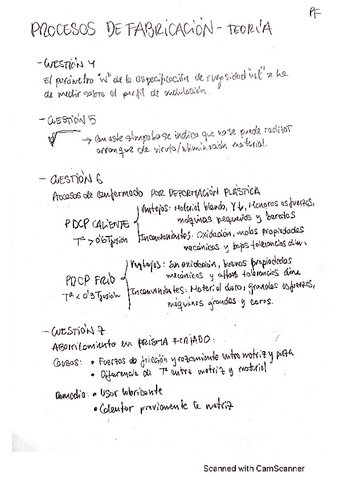 PF
PROCESOS DE FABRICACIÓN - TEORÍA
- CUESTIÓN 4
El parámetro "W" de la especificación de rugosidad se ha
de medir sobre el perfil de ondulación.
- CUESTIÓN 5
→ Con este símbolo se indica que no se puede realizar
arranque de viruta/eliminación material.
- CUESTIÓN 6
Procesos de conformado POR DEFORMACIÓN PLÁSTICA
PDCP CALIENTE
Tª > 0'5 Tfusión
Ventajas: Material blando, Y↓, Menores esfuerzos,
máquinas pequeñas y baratas
Inconvenientes: Oxidación, malas propiedades
mecánicas y bajas tolerancias dim.
PDCP FRÍO
Tª < 0'3 Tfusión
Ventajas: Sin oxidación, buenas propiedades
mecánicas y altas tolerancias dim
Inconvenientes: Material duro, grandes esfuerzos,
máquinas grandes y caras.
- CUESTIÓN 7
Abarrilamiento en PRISMA FORJADO:
Causas: • Fuerzas de fricción y rozamiento entre matriz y pieza
• Diferencia de Tª entre matriz y material
Remedio: • Usar lubricante
• Calentar previamente la matriz
Scanned with CamScanner